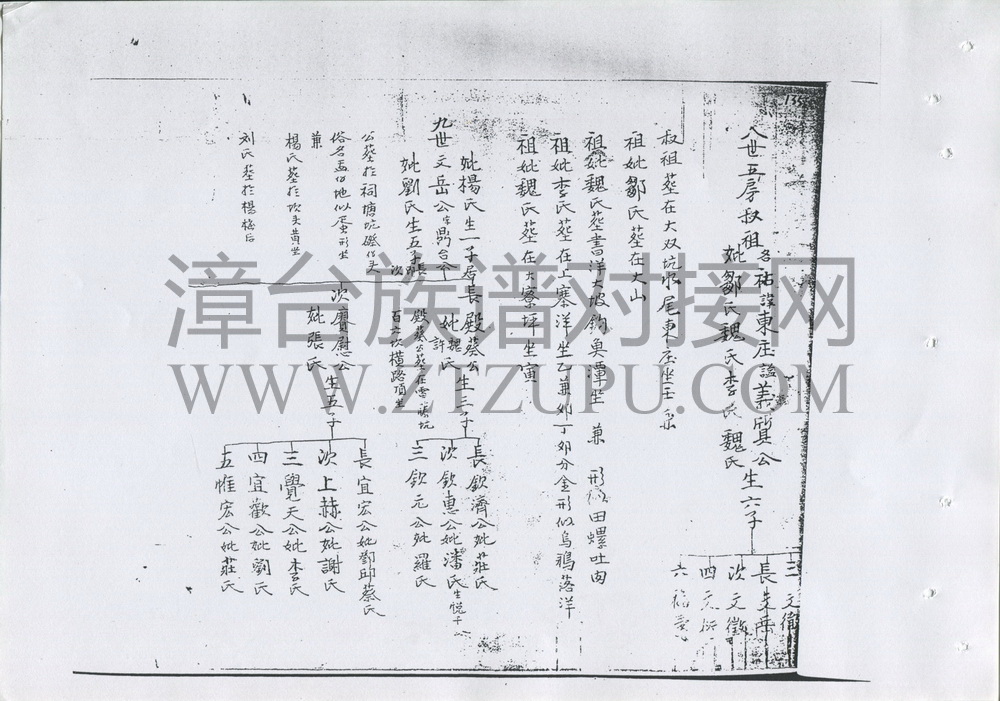 135
八世五房叔祖名祐諱東庄諡義質公生六子
妣鄒氏魏氏李氏魏氏
三文衛
長文岳
次文徵
四文
六
叔祖葬在大双坑水尾東庄坐壬
祖妣鄒氏葬在大山
祖妣魏氏葬書洋大坡鈎奥潭坐 兼 形似田螺吐肉
祖妣李氏葬在上寨洋坐乙兼卯丁卯分金形似烏鴉落洋
祖妣魏氏葬在大寮坪坐寅
九世文岳公生鼎台公
妣楊氏生一子尋長殿葵公生三子
妣魏氏許
妣劉氏生五子
長殿葵公葬在雷藤坑
次百六坎橫路頂坐
長欽濟公妣莊氏
次欽惠公妣潘氏生悦千
三欽元公妣羅氏
公葬於祠塘坑
俗名孟伯地似蛋形坐
兼
楊氏葬於坎头黄坐
刘氏葬於楊梅后
次賡慰公生五子
妣張氏
長宜宏公妣鄧邱蔡氏
次上赫公妣謝氏
三覺天公妣李氏
四宜歡公妣劉氏
五惟宏公妣莊氏
漳台族谱对接网
WWW.ZTZUPU.COM